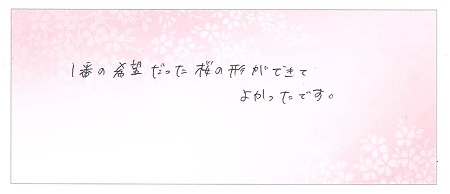 1番の希望だった桜の形ができて
よかったです。